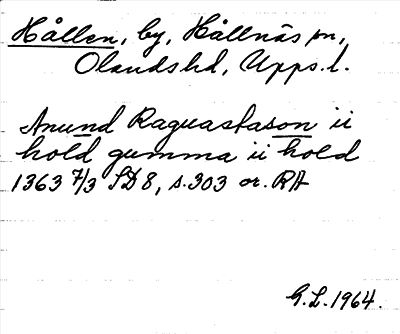 Hållen, by, Hållnäs sn,
Olands hd, Upps. l.
Anund Raguastason ii
hold gumma ii hold
1363 7/3 SD 8, s. 303 or. RA
G.L. 1964.